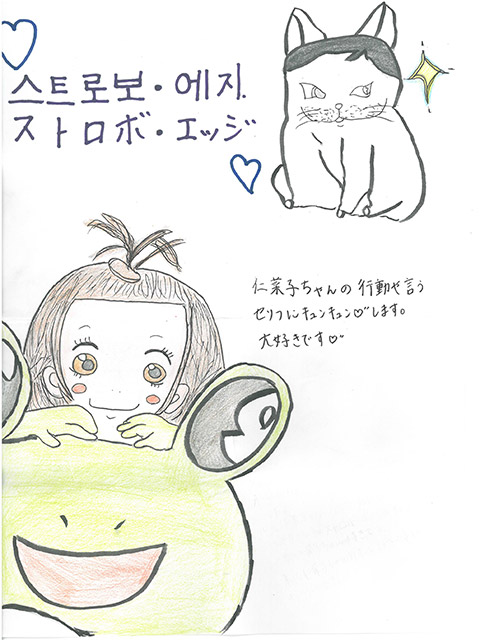 스트로보·에지
ストロボ・エッジ
仁菜子ちゃんの行動や言う
セリフにキュンキュン♡します。
大好きです♡